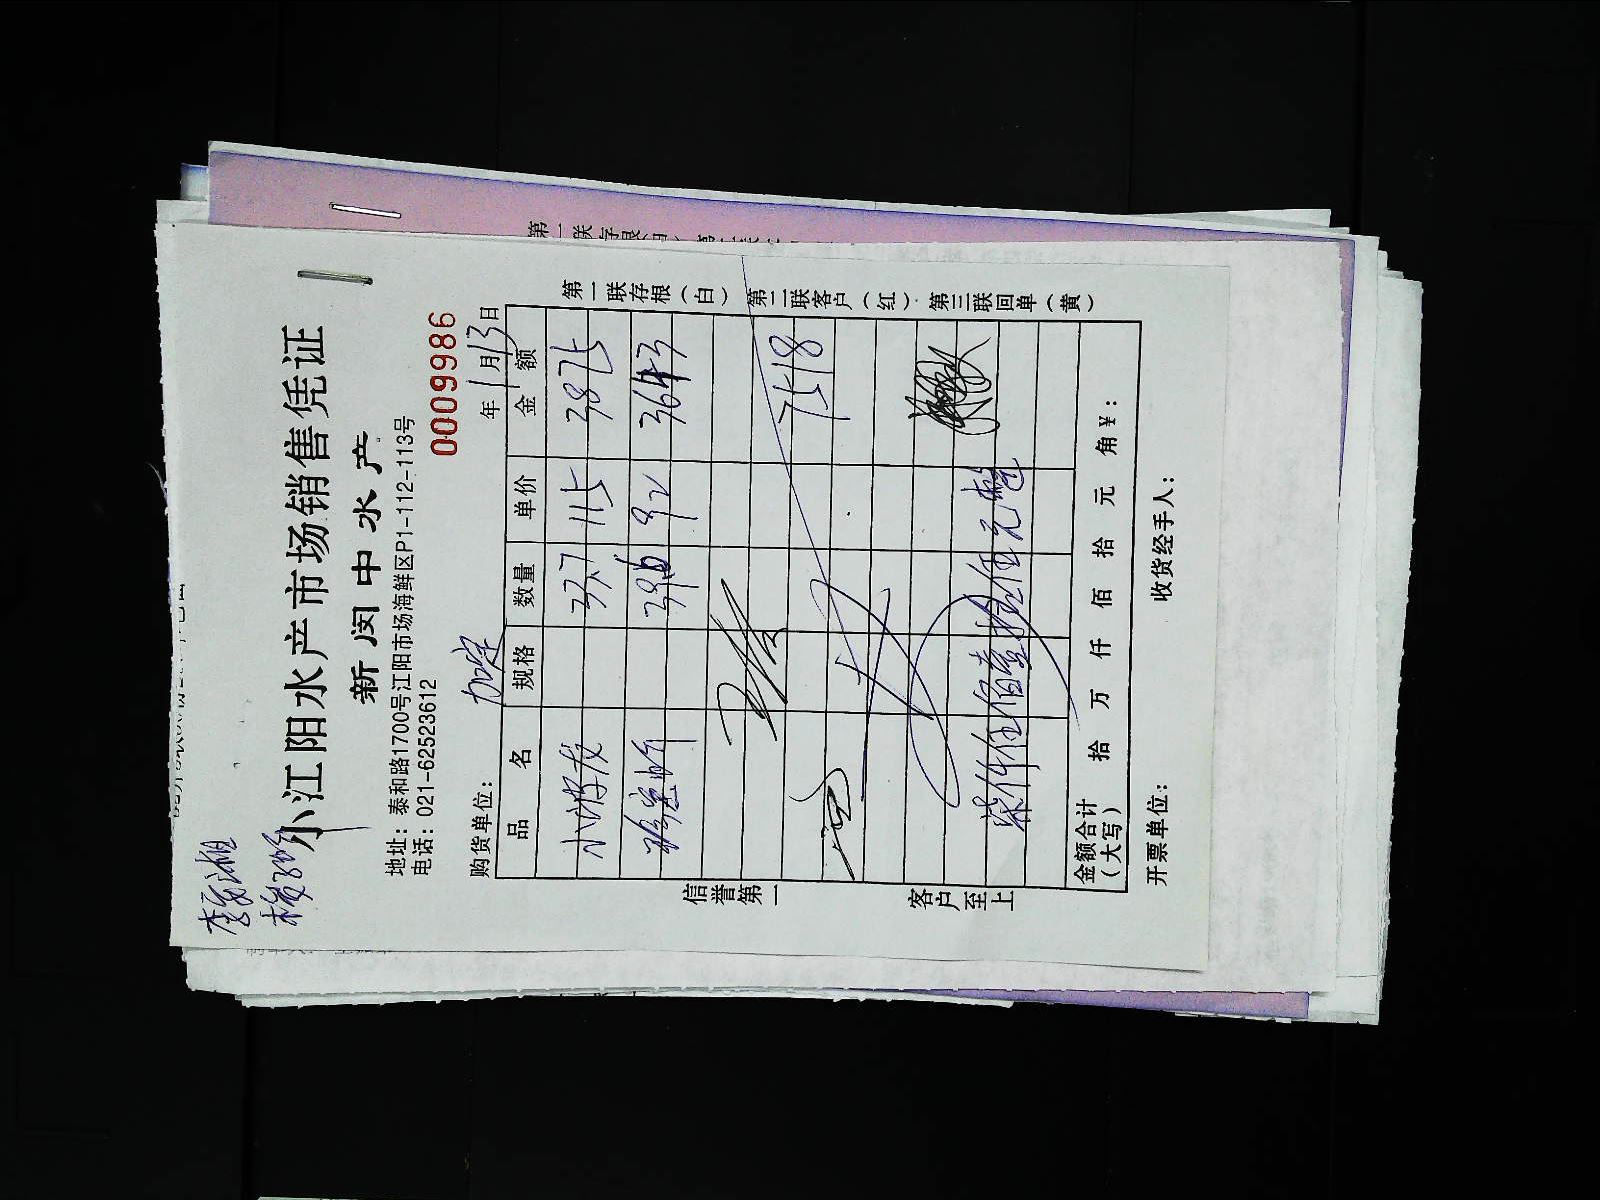 小江阳水产市场销售凭证
新闽中水产
地址：泰和路1700号江阳市场海鲜区P1-112-113号
电话：021-62523612
0009986
购货单位： 年1月13日
品名 规格 数量 单价 金额
33.7 115 3875
39.6 92 3643
7518
柒仟伍佰壹拾 元整
金额合计（大写） 拾 万 仟 佰 拾 元 角 ¥：
开票单位： 收货经手人：
信誉第一 客户至上
第一联存根（白） 第二联客户（红） 第三联回单（黄）